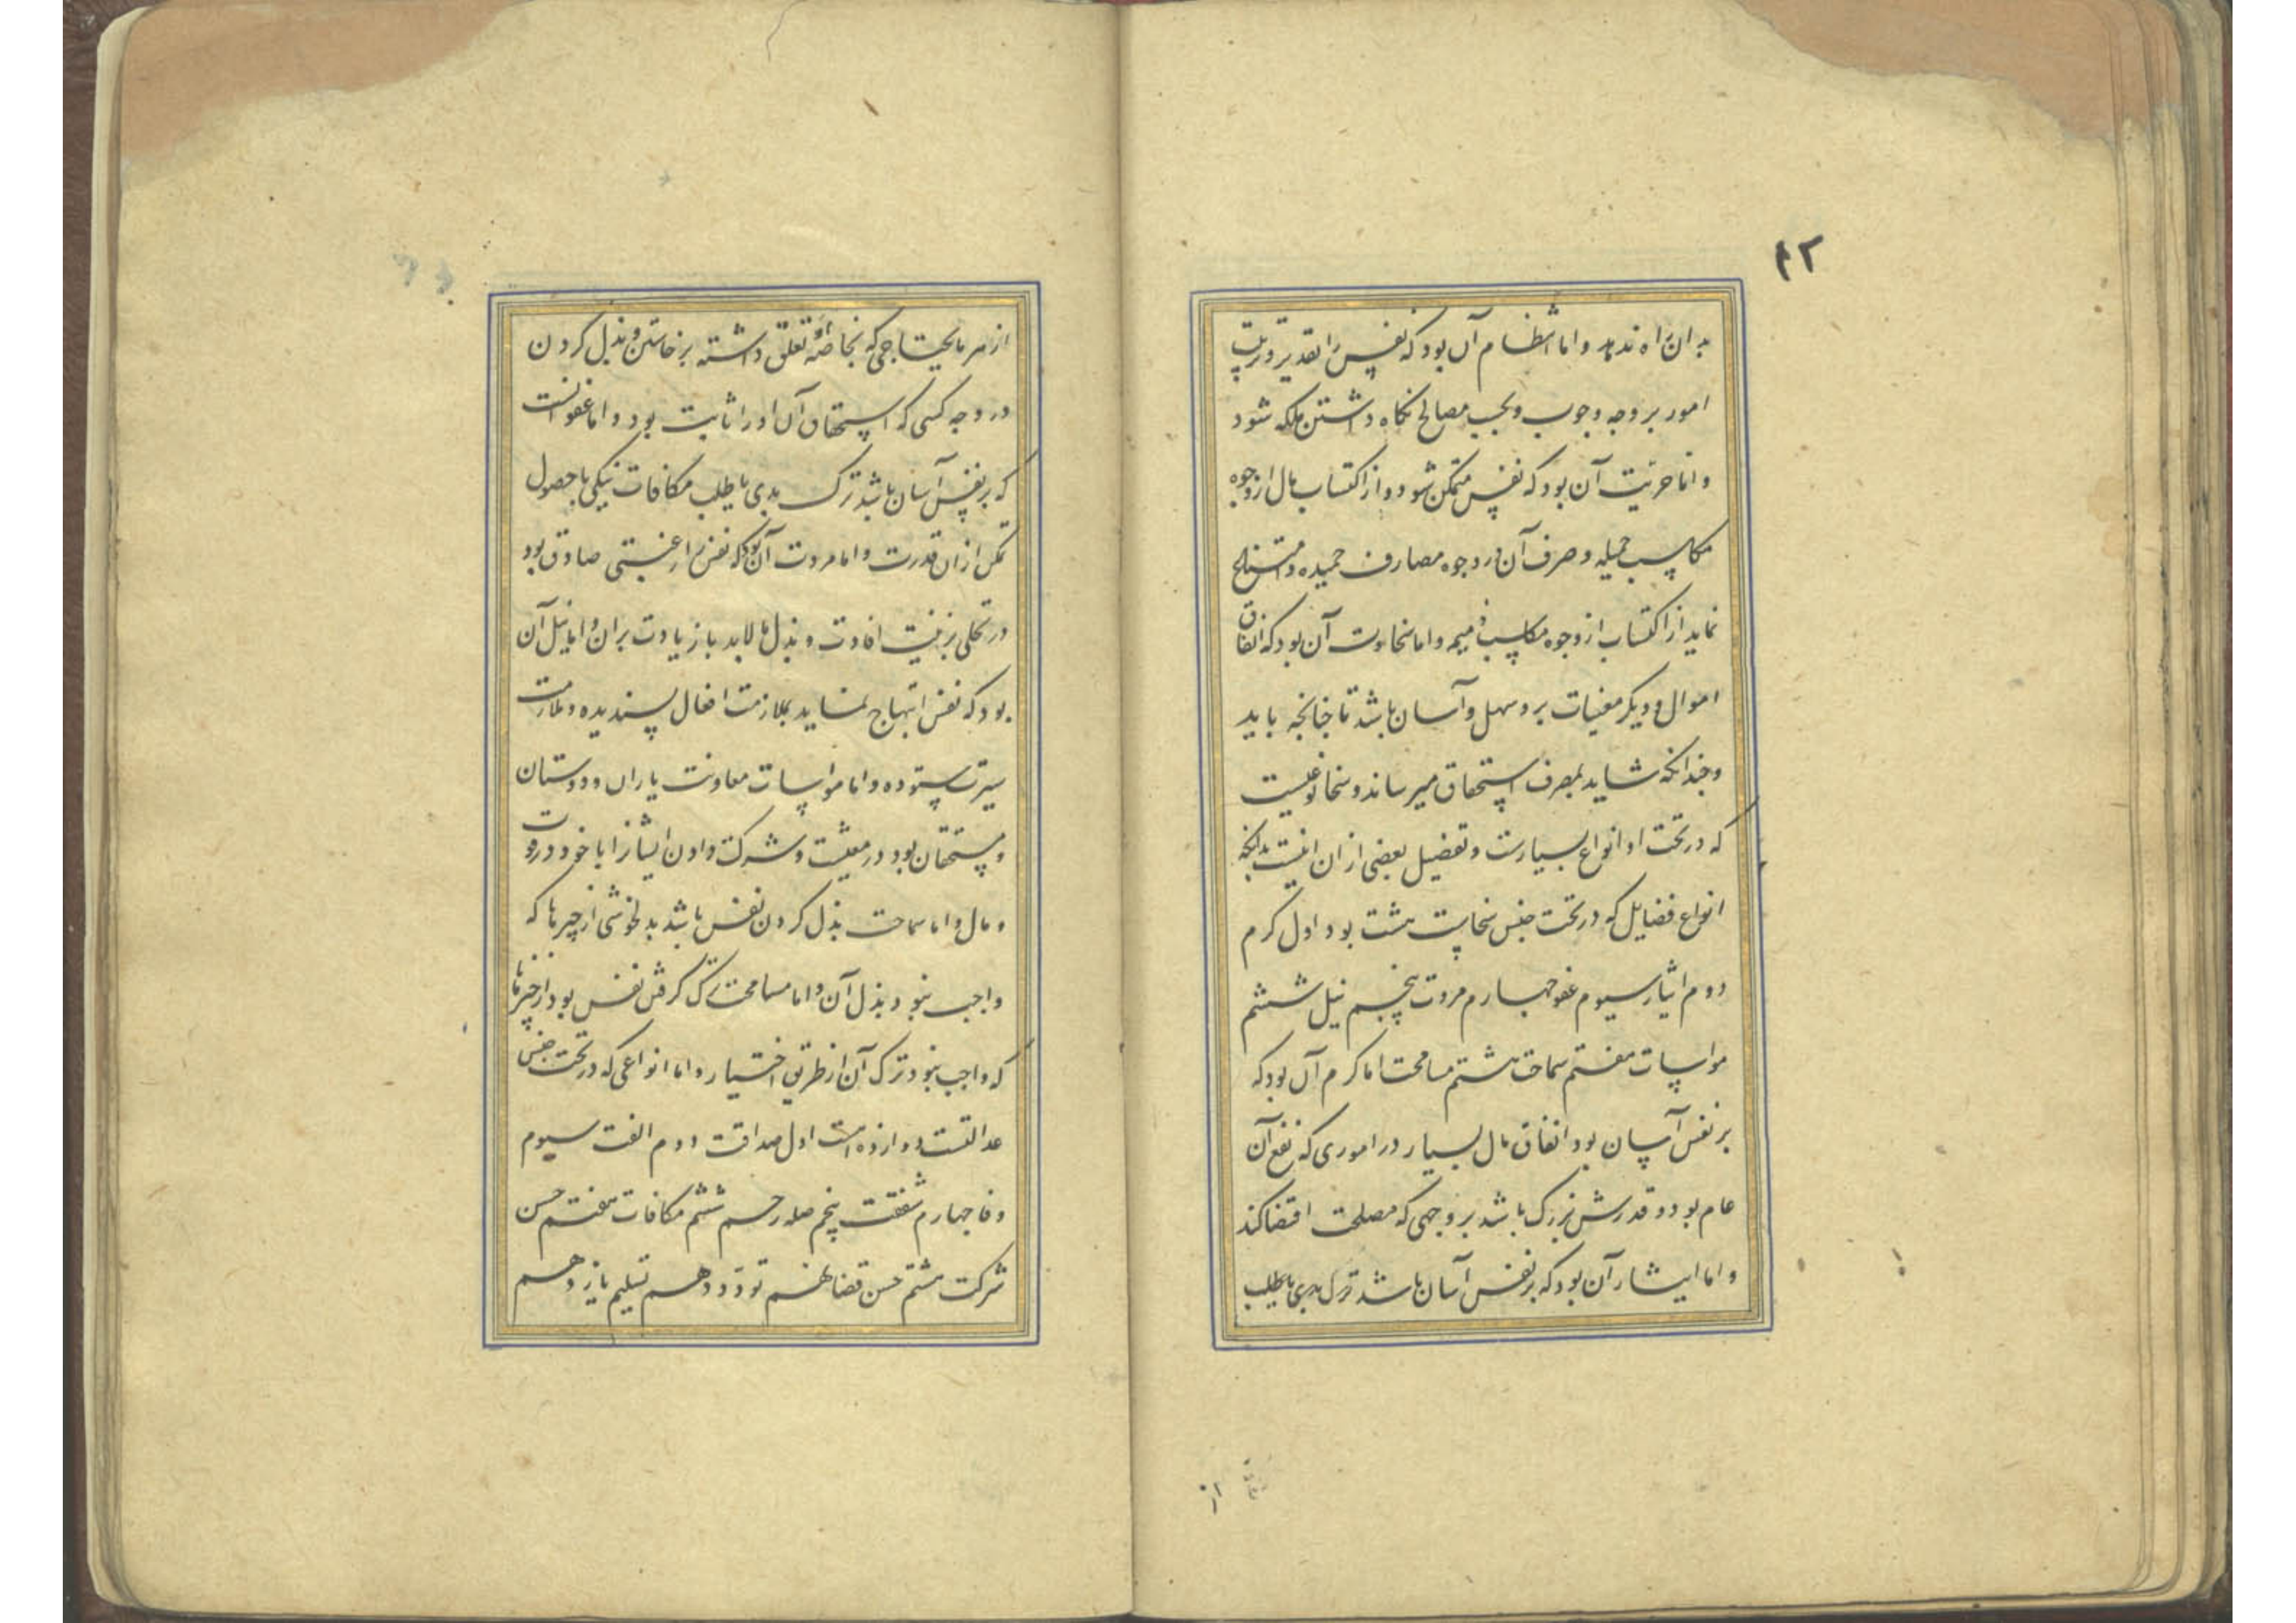 ۴۲
بدان راه ندهد و اما انتظام آن بود که نفس را تقدیر و ترتیب
امور بر وجه وجوب و بحسب مصالح نگاه داشتن ملکه شود
و اما حریت آن بود که نفس متمکن شود و از اکتساب مال از وجوه
مکاسب جمیله و صرف آن در وجوه مصارف حمیده و امتناع
نماید از اکتساب از وجوه مکاسب ذمیمه و اما سخاوت آن بود که انفاق
اموال و دیگر مقنیات برو سهل و آسان باشد تا چنانچه باید
و چندانکه شاید بمصرف استحقاق میرساند و سخا نوعیست
که در تحت او انواع بسیارست و تفضیل بعضی ازان اینست بدانکه
انواع فضایل که در تحت جنس سخاست هشت بود اول کرم
دوم ایثار سیوم عفو چهارم مروت پنجم نیل ششم
مواسات هفتم سماحت هشتم مسامحت اما کرم آن بود که
بر نفس آسان بود انفاق مال بسیار در اموری که نفع آن
عام بود و قدرش بزرگ باشد بر وجهی که مصلحت اقتضا کند
و اما ایثار آن بود که بر نفس آسان باشد ترک بدی با طلب
از
از هر مایحتاجی که بخاصه او تعلق داشته برخاستن و بذل کردن
در وجه کسی که استحقاق آن او را ثابت بود و اما عفو آنست
که بر نفس آسان باشد ترک بدی یا طلب مکافات نیکی با حصول
تمکن ازان قدرت و اما مروت آن بود که نفس را رغبتی صادق بود
در تحلی بزینت افادت و بذل مالابد با زیادت بران و اما نیل آن
بود که نفس ابتهاج نماید بملازمت افعال پسندیده و ملازمت
سیرت ستوده و اما مواسات معاونت یاران و دوستان
و مستحقان بود در معیشت و شرکت دادن ایشانرا با خود در قوت
و مال و اما سماحت بذل کردن نفس باشد بدلخوشی از چیزها که
واجب نبود بذل آن و اما مسامحت ترک گرفتن نفس بود از چیزها
که واجب نبود ترک آن از طریق اختیار و اما انواعی که در تحت جنس
عدالتست دوازده است اول صداقت دوم الفت سیوم
وفا چهارم شفقت پنجم صله رحم ششم مکافات هفتم حسن
شرکت هشتم حسن قضا نهم تودد دهم تسلیم یازدهم